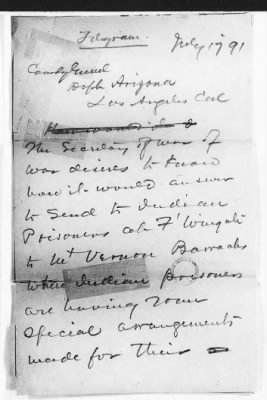 Telegram.
July 17 91
Comdg Genl
Dept Arizona
Los Angeles Cal
The Secretary of war
war desires to know
how it would answer
to send to Indian
Prisoners at Ft Wingate
to Mt Vernon Barracks
where Indian prisoners
are having some
special arrangements
made for their